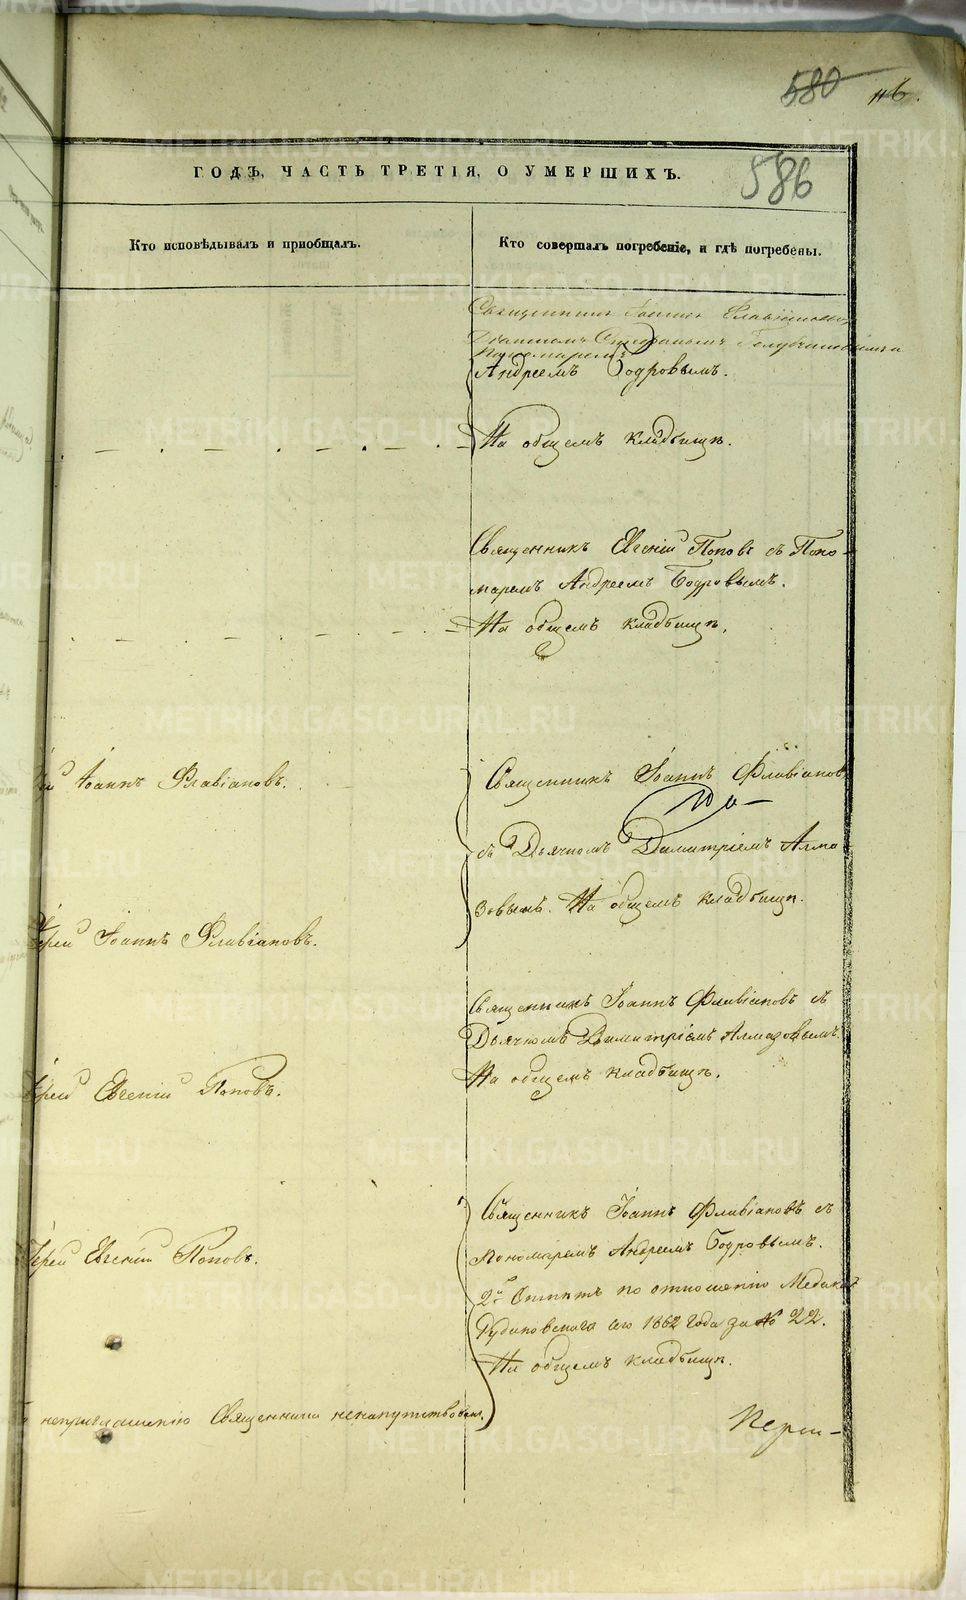 580 116.
586
ГОДЪ, ЧАСТЬ ТРЕТІЯ, О УМЕРШИХЪ.
Кто исповѣдывалъ и пріобщалъ.
Кто совершалъ погребеніе, и гдѣ погребены.
Священникъ Іоаннъ Флавіановъ
Діакономъ Стефаномъ
Пономаремъ
Андреемъ Бодровымъ.
На общемъ кладбищѣ.
Священникъ Евгеній Поповъ съ Поно-
маремъ Андреемъ Бодровымъ.
На общемъ кладбищѣ.
Іоаннъ Флавіановъ.
Священникъ Іоаннъ Флавіановъ
съ Дьячкомъ Димитріемъ Алма
зовымъ. На общемъ кладбищѣ.
Іерей Іоаннъ Флавіановъ.
Священникъ Іоаннъ Флавіановъ съ
Дьячкомъ Димитріемъ Алмазовымъ.
На общемъ кладбищѣ.
Іерей Евгеній Поповъ.
Священникъ Іоаннъ Флавіановъ съ
Пономаремъ Андреемъ Бодровымъ.
Іерей Евгеній Поповъ.
по отношенію Медика
1862 года за № 22.
На общемъ кладбищѣ.
неприглашенію Священника ненапутствован.
METRIKI.GASO-URAL.RU